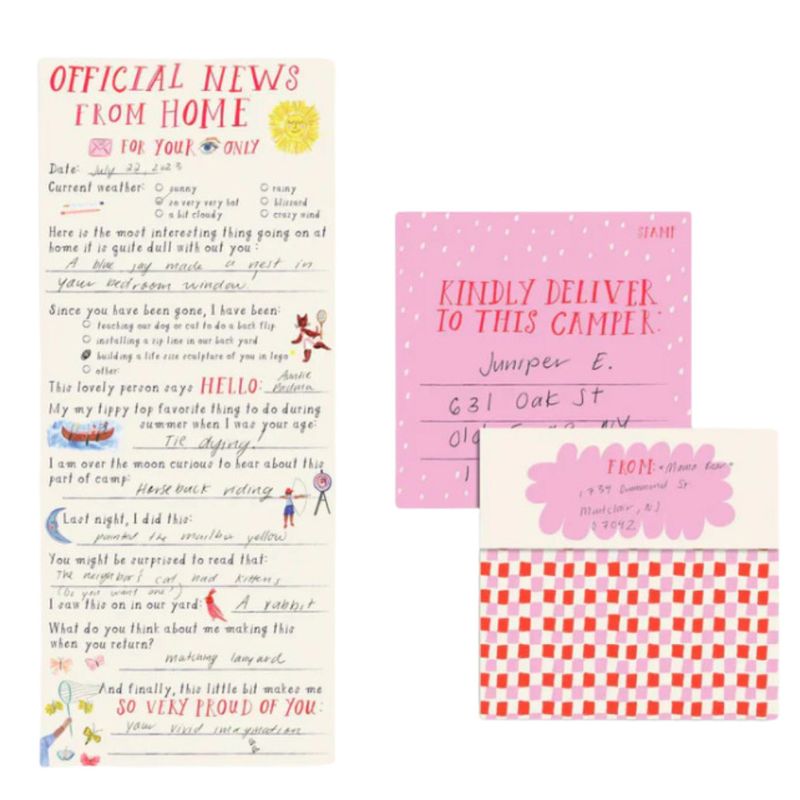 OFFICIAL NEWS
FROM HOME
FOR YOUR ONLY
Date: July 22, 2023
Current weather:
sunny
rainy
so very very hot
blizzard
a bit cloudy
crazy wind
Here is the most interesting thing going on at
home it is quite dull with out you:
A blue jay made a nest in
your bedroom window!
Since you have been gone, I have been:
teaching our dog or cat to do a back flip
installing a zip line in our back yard
building a life size sculpture of you in lego
other:
This lovely person says HELLO: Auntie
Barbara
My my tippy top favorite thing to do during
summer when I was your age:
Tie dying!
I am over the moon curious to hear about this
part of camp:
Horseback riding
Last night, I did this:
painted the mailbox yellow
You might be surprised to read that:
The neighbors cat had kittens
(Do you want one?)
I saw this on in our yard: A rabbit
What do you think about me making this
when you return?
matching lanyard
And finally, this little bit makes me
SO VERY PROUD OF YOU:
your vivid imagination
STAMP
KINDLY DELIVER
TO THIS CAMPER:
Juniper E.
631 Oak St
Old NY
1
FROM: Mama Bear
Drummond St
NJ
07042